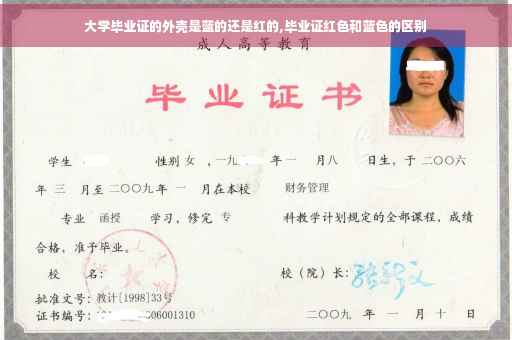 大学毕业证的外壳是蓝的还是红的,毕业证红色和蓝色的区别
成人高等教育
毕业证书
学生 性别 女 ，一九 年一 月八 日生，于二〇〇六
年 三 月至二〇〇九年 一 月在本校 财务管理
专业 函授 学习，修完 专 科教学计划规定的全部课程，成绩
合格，准予毕业。
校 名： 校（院）长：
批准文号：教计[1998]33号
证书编号： 06001310 二〇〇九 年 一 月 十 日